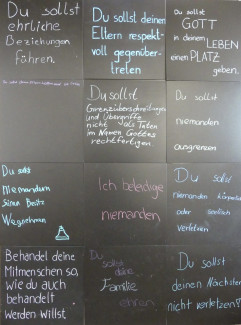 Du sollst
ehrliche
Beziehungen
führen.
Du sollst deinen
Eltern respekt-
voll gegenüber-
treten
Du sollst
GOTT
in deinem LEBEN
einen PLATZ
geben.
Du sollst
Grenzüberschreitungen
und Übergriffe
nicht als Taten
im Namen Gottes
rechtfertigen.
Du sollst
niemanden
ausgrenzen
Du sollst
Niemandem
Seinen Besitz
Wegnehmen
Ich beleidige
niemanden
Du sollst
niemanden körperlich
oder seelisch
verletzen
Behandel deine
Mitmenschen so,
wie du auch
behandelt
Werden Willst
Du
sollst
deine
Familie
ehren
Du sollst
deinen Nächsten
nicht verletzen!